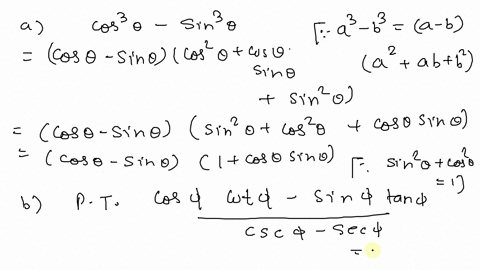 a) cos³θ − sin³θ [∵ a³−b³ = (a−b)
= (cosθ − sinθ) (cos²θ + cosθ. (a² + ab + b²)
sinθ
+ sin²θ)
= (cosθ − sinθ) (sin²θ + cos²θ + cosθ sinθ)
= (cosθ − sinθ) (1 + cosθ sinθ) [∵ sin²θ + cos²θ
= 1]
b) P.T. cosφ cotφ − sinφ tanφ
cscφ − secφ
=